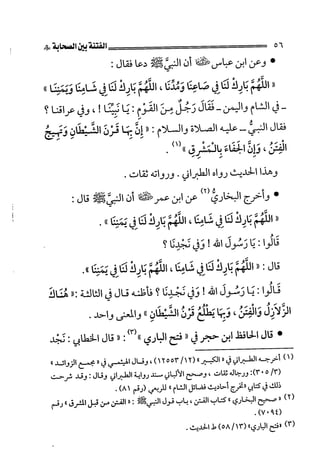 ٥٦ الفتنة بين الصحابة
• وعن ابن عباس أن النبي ﷺ دعا فقال :
« اللَّهُمَّ بَارِكْ لَنَا فِي صَاعِنَا وَمُدِّنَا ، اللَّهُمَّ بَارِكْ لَنَا فِي شَامِنَا وَيَمَنِنَا »
- في الشام واليمن - فَقَالَ رَجُلٌ مِنَ القَوْمِ : يَا نَبِيَّنَا ! ، وفي عراقنا ؟
فقال النبيُّ - عليه الصلاة والسلام : « إِنَّ بِهَا قَرْنَ الشَّيْطَانِ وَتَهِيجُ
الْفِتَنُ ، وَإِنَّ الجَفَاءَ بِالْمَشْرِقِ » (١) .
وهذا الحديث رواه الطبراني . ورواته ثقات .
• وأخرج البخاريُّ (٢) عن ابن عمر أن النبي ﷺ قال :
« اللَّهُمَّ بَارِكْ لَنَا فِي شَامِنَا ، اللَّهُمَّ بَارِكْ لَنَا فِي يَمَنِنَا » .
قَالُوا : يَا رَسُولَ اللهِ ! وَفِي نَجْدِنَا ؟
قال : « اللَّهُمَّ بَارِكْ لَنَا فِي شَامِنَا ، اللَّهُمَّ بَارِكْ لَنَا فِي يَمَنِنَا » .
قَالُوا : يَا رَسُولَ اللهِ ! وَفِي نَجْدِنَا ؟ فأظنه قال في الثالثة : « هُنَاكَ
الزَّلَازِلُ وَالْفِتَنُ ، وَبِهَا يَطْلُعُ قَرْنُ الشَّيْطَانِ » والمعنى واحد .
• قال الحافظ ابن حجر في « فتح الباري » (٣) : « قال الخطابي : نَجْد
(١) أخرجه الطبراني في « الكبير » (١٢/ ١٢٥٥٣) ، وقال الهيثمي في « مجمع الزوائد »
(٣/ ٣٠٥) : ورجاله ثقات ، وصحح الألباني سند رواية الطبراني وقال : وقد شرحت
ذلك في كتابي « تخريج أحاديث فضائل الشام » للربعي (رقم ٨١) .
(٢) « صحيح البخاري » كتاب الفتن ، باب قول النبي ﷺ : « الفتن من قبل المشرق » رقم
(٧٠٩٤) .
(٣) « فتح الباري » (١٣/ ٥٨) ط الحديث .